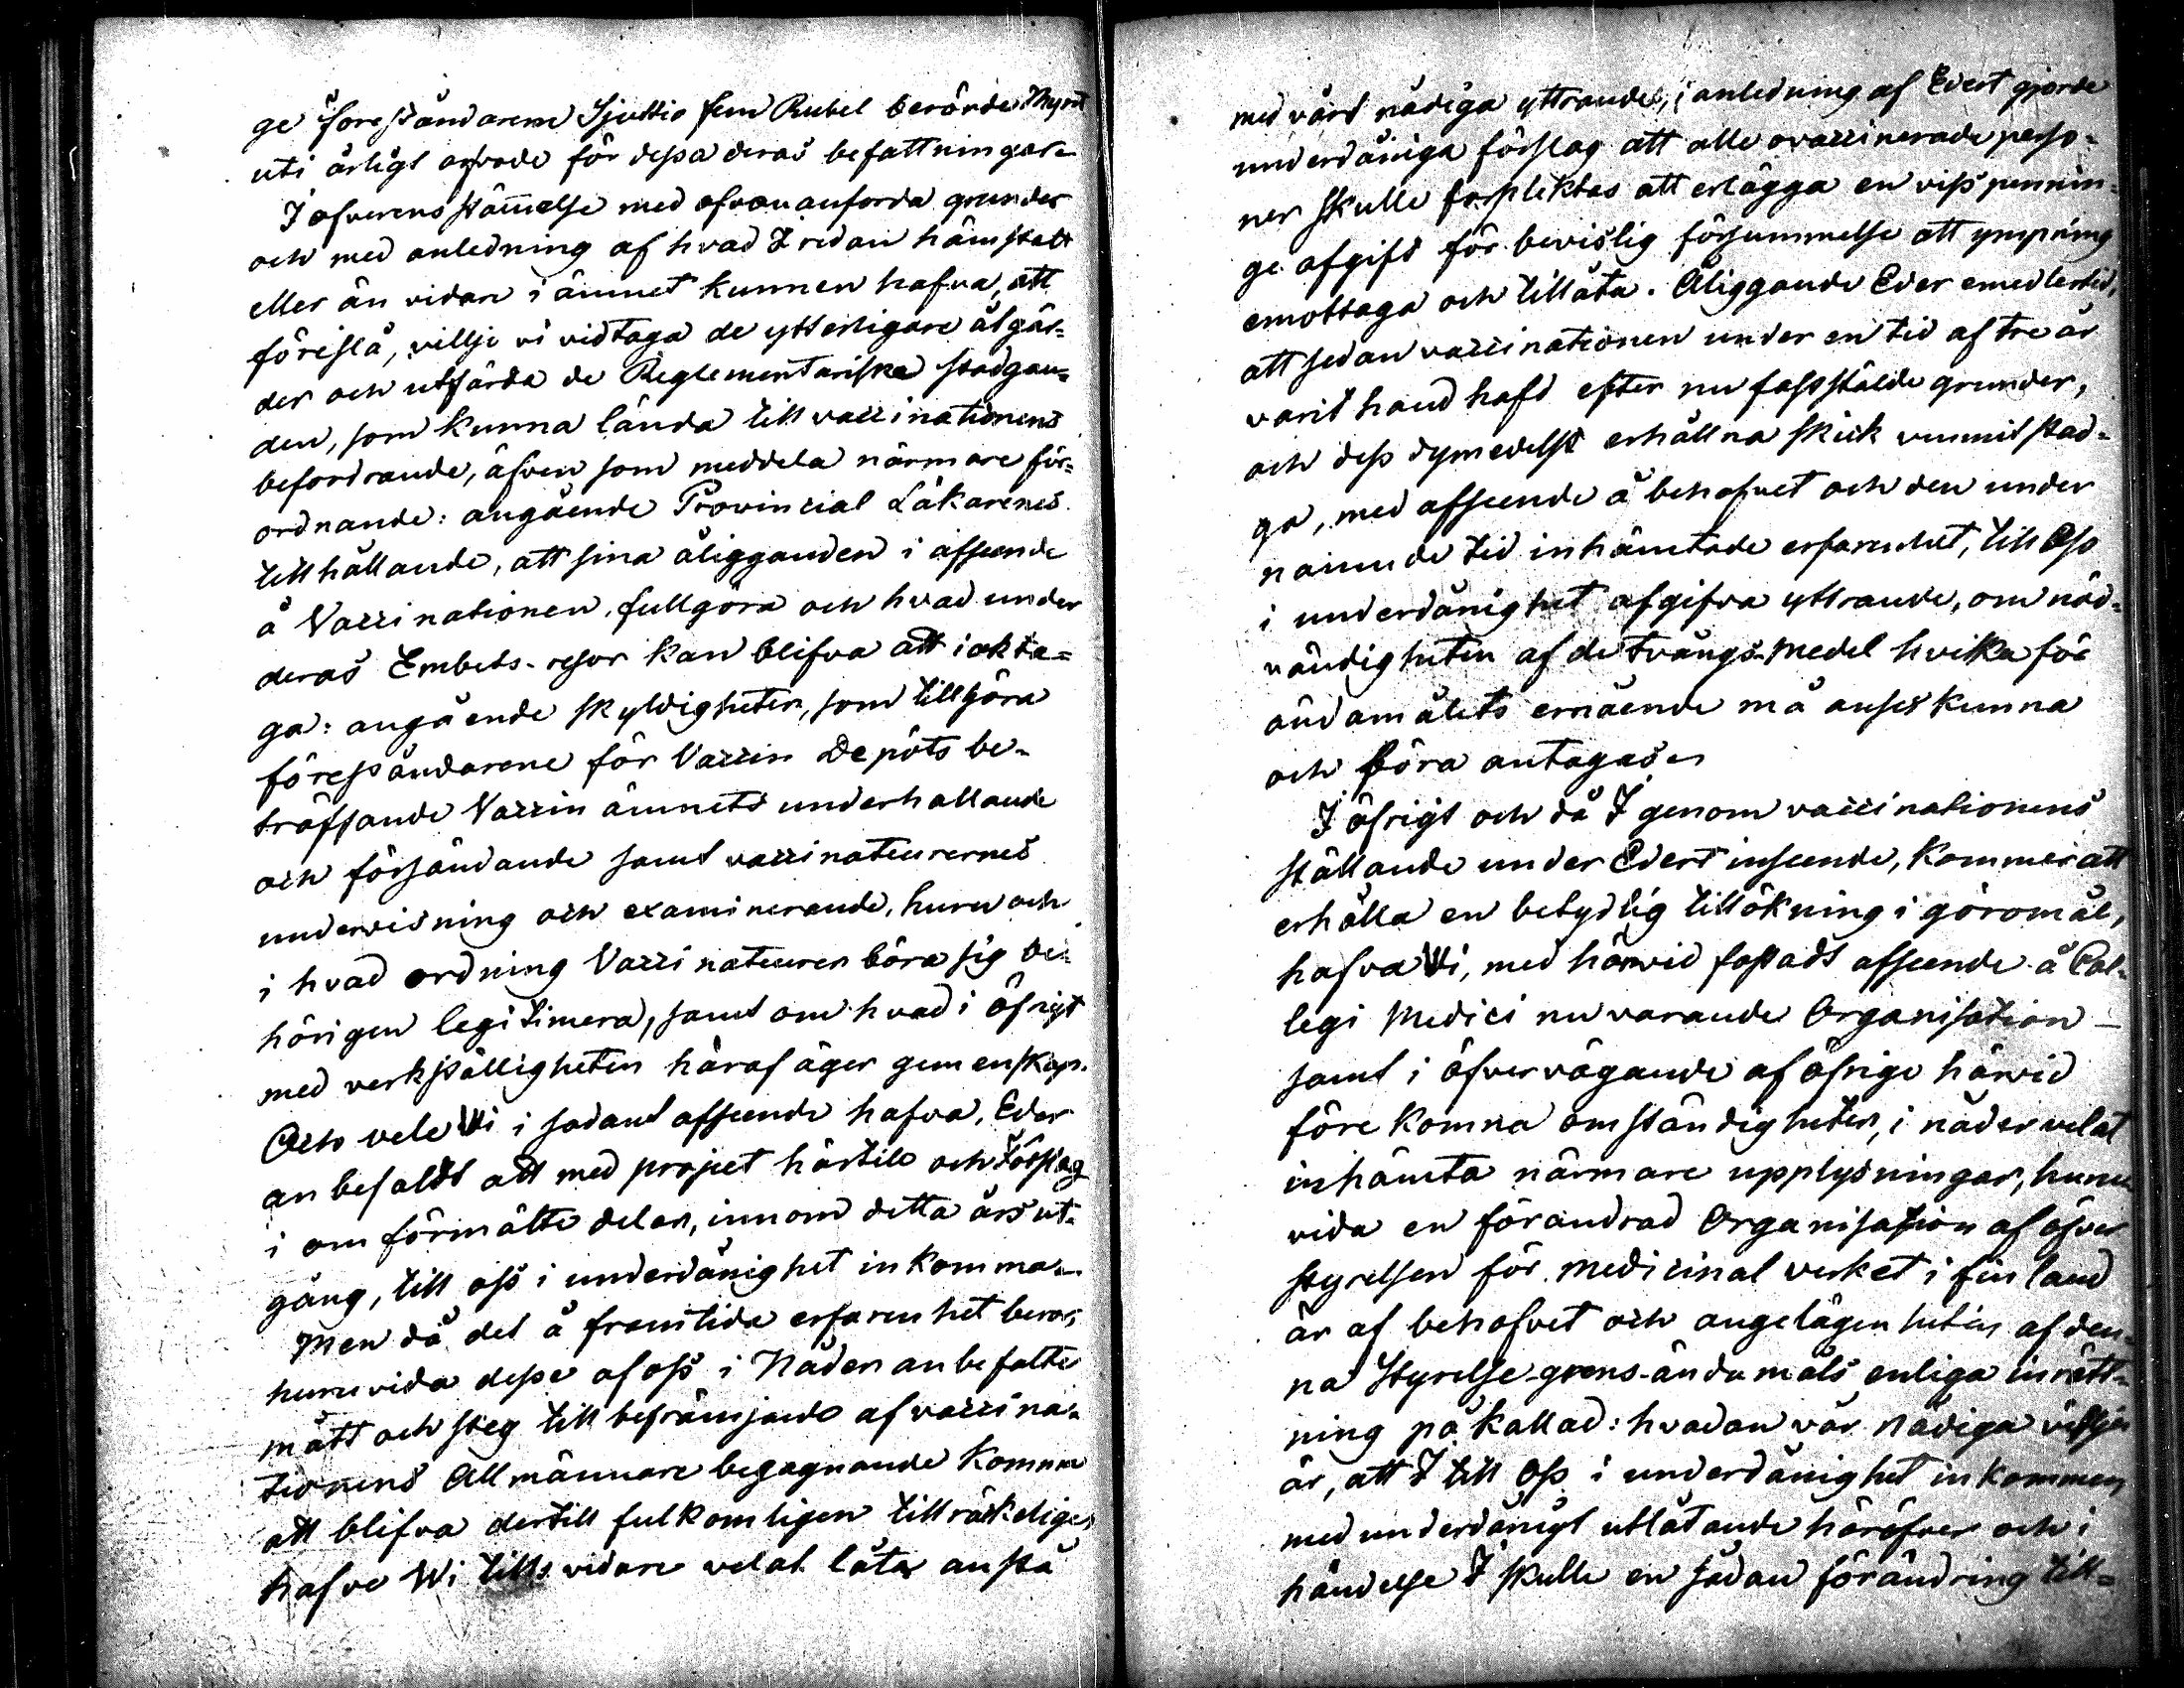 ge föreståndarene Sjuttio fem Rubel berörde Mynt
uti årligt arfvode för dessa deras befattningar.
I öfverensstämmelse med ofvananförda grunder
och med anledning af hvad I redan hämstält
eller än vidare i ämnet kunnen hafva, att
föreslå, villje vi vidtaga de ytterligare åtgär-
der och utfärda de Reglementariska stadgan-
den, som kunna lända till vaccinationens
befordrande, äfven som meddela närmare för-
ordnande: angående Provincial Läkarenes
tillhållande, att sina åligganden i afseende
å Vaccinationen fullgöra och hvad under
deras Embets-resor kan blifva att iakta-
ga: angående skyldigheter, som tillhöra
föreståndarene för Vaccin Depôts be-
träffande Vaccin ämnets underhållande
och försändande samt vaccinateurernes
undervisning och examinerande, huru och
i hvad ordning Vaccinateurer böra sig be-
hörigen legitimera, samt om hvad i öfrigt
med verkställigheten häraf äger gemenskap.
Och vele Wi i sådant afseende hafva, Eder
anbefaldt att med projeet härtill och förslag
i omförmälte delar, innom detta års ut-
gång, till oss i underdånighet inkomma.
Men då det å framtida erfarenhet beror,
huruvida desse af oss i Nåder anbefalte
mått och steg till befrämjande af vaccina-
tionens Allmännare begagnande komma
att blifva dertill fulkomligen tillräckelige,
hafve Wi tills vidare velat låta anstå
med vårt nådiga yttrande, i anledning af Edert gjorde
underdåniga förslag att alle ovaccinerade perso-
ner skulle förpliktas att erlägga en viss pennin-
ge afgift för bevislig försummelse att ympning
emottaga och tillåta. Åliggande Eder emedlertid,
att sedan vaccinationen under en tid af tre år
varit handhaft efter nu fastställde grunder,
och dess dymedelst erhållna skick vunnit stad-
ga, med afseende å behofvet och den under
nämnde tid inhämtade erfarenhet, till Oss
i underdånighet afgifva yttrande, om nöd-
vändigheten af de tvångs-medel hvilka för
ändamålets ernående må anses kunna
och böra antagas.
I öfrigt och då I genom vaccinationens
ställande under Edert inseende, kommer att
erhålla en betydlig tillökning i göromål,
hafva Wi, med härvid fästadt afseende å Col-
legi Medici nuvarande Organisation —
samt i öfvervägande af öfrige härvid
förekomna omständigheter, i nåder velat
inhämta närmare upplysningar, huru
vida en förändrad Organisation af öfver
styrelsen för medicinal verket i Finland
är af behofvet och angelägenheten af den-
na Styrelse-grens-ändamåls enliga inrätt-
ning påkallad: hvadan vår nådiga vilja
är, att I till Oss i underdånighet inkommen
med underdånigt utlåtande häröfver och i
händelse I skulle en sådan förändring till-